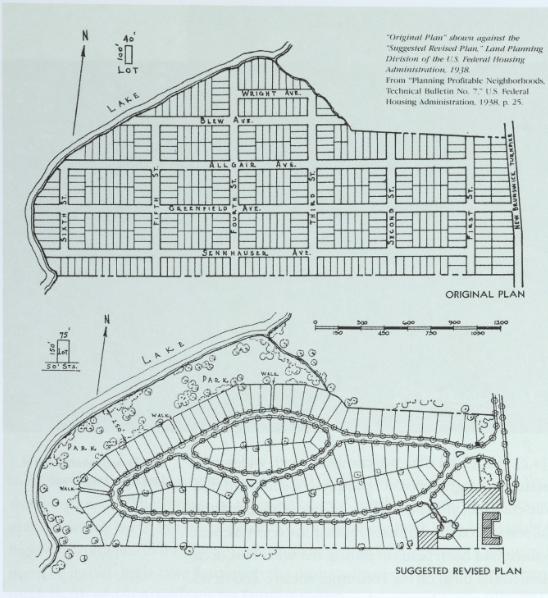 "Original Plan" shown against the
"Suggested Revised Plan," Land Planning
Division of the U.S. Federal Housing
Administration, 1938.
From "Planning Profitable Neighborhoods,
Technical Bulletin No. 7," U.S. Federal
Housing Administration, 1938, p. 25.
N
40'
100'
LOT
LAKE
WRIGHT AVE.
BLEW AVE.
ALLGAIR AVE.
GREENFIELD AVE.
SENNHAUSER AVE.
SIXTH ST.
FIFTH ST.
FOURTH ST.
THIRD ST.
SECOND ST.
FIRST ST.
NEW BRUNSWICK TURNPIKE
ORIGINAL PLAN
N
75'
150'
LOT
50' STS.
LAKE
0 300 600 750 900 1200
150 450 750 1050
PARK
WALK
WALK
PARK
150'
WALK
SUGGESTED REVISED PLAN